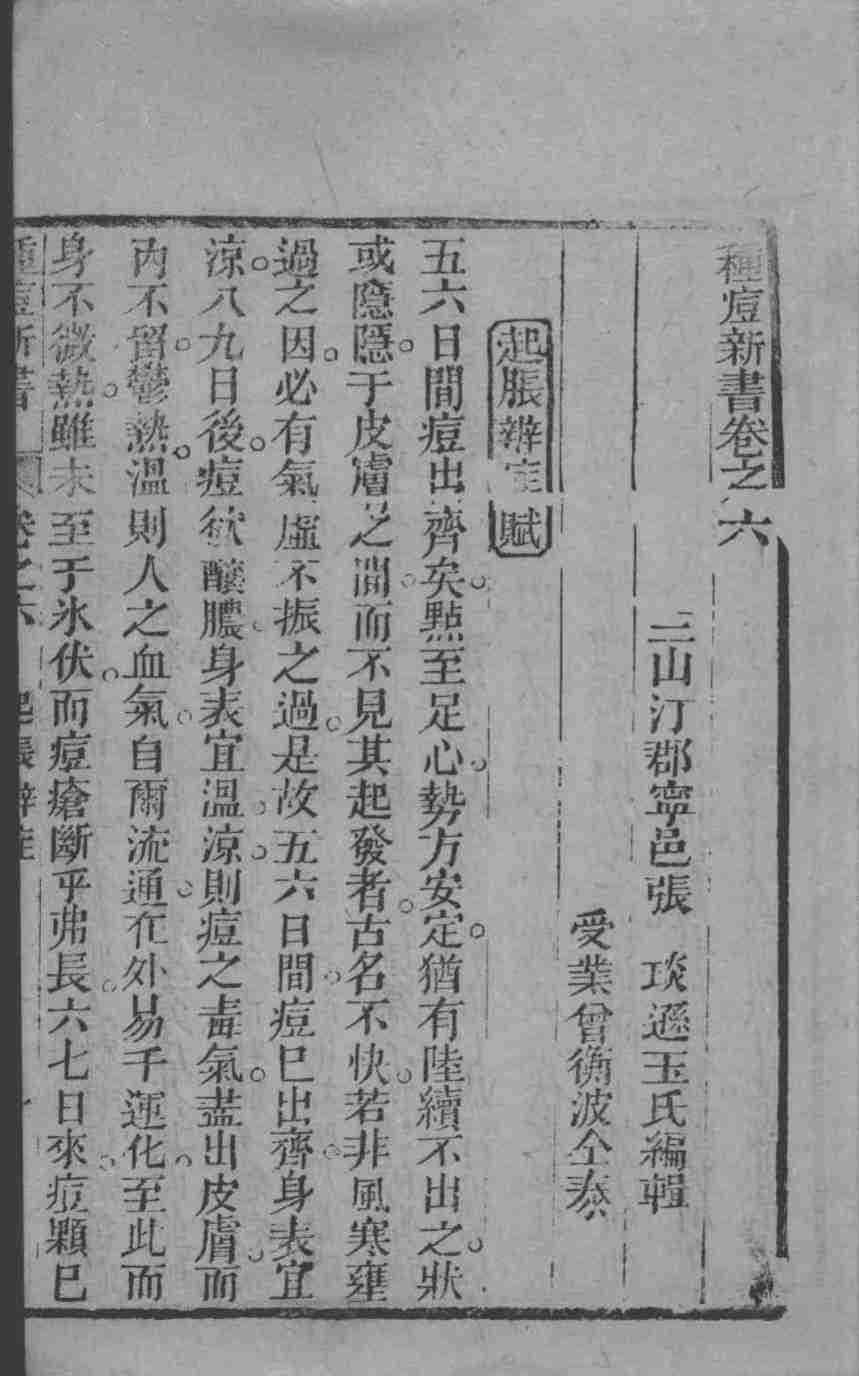 種痘新書卷之六
三山汀郡寧邑張　琰遜玉氏編輯
受業曾衡波仝叅
起脹辨症賦
五六日間痘出齊矣點至足心勢方安定猶有陸續不出之狀
或隱隱于皮膚之間而不見其起發者古名不快若非風寒壅
過之因必有氣虛不振之過是故五六日間痘已出齊身表宜
涼八九日後痘欲釀膿身表宜溫涼則痘之毒氣盡出皮膚而
內不留鬱熱溫則人之血氣自爾流通在外易于運化至此而
身不微熱雖未至于氷伏而痘瘡斷乎弗長六七日來痘顆已
種痘新書　卷之六　起脹辨症　一